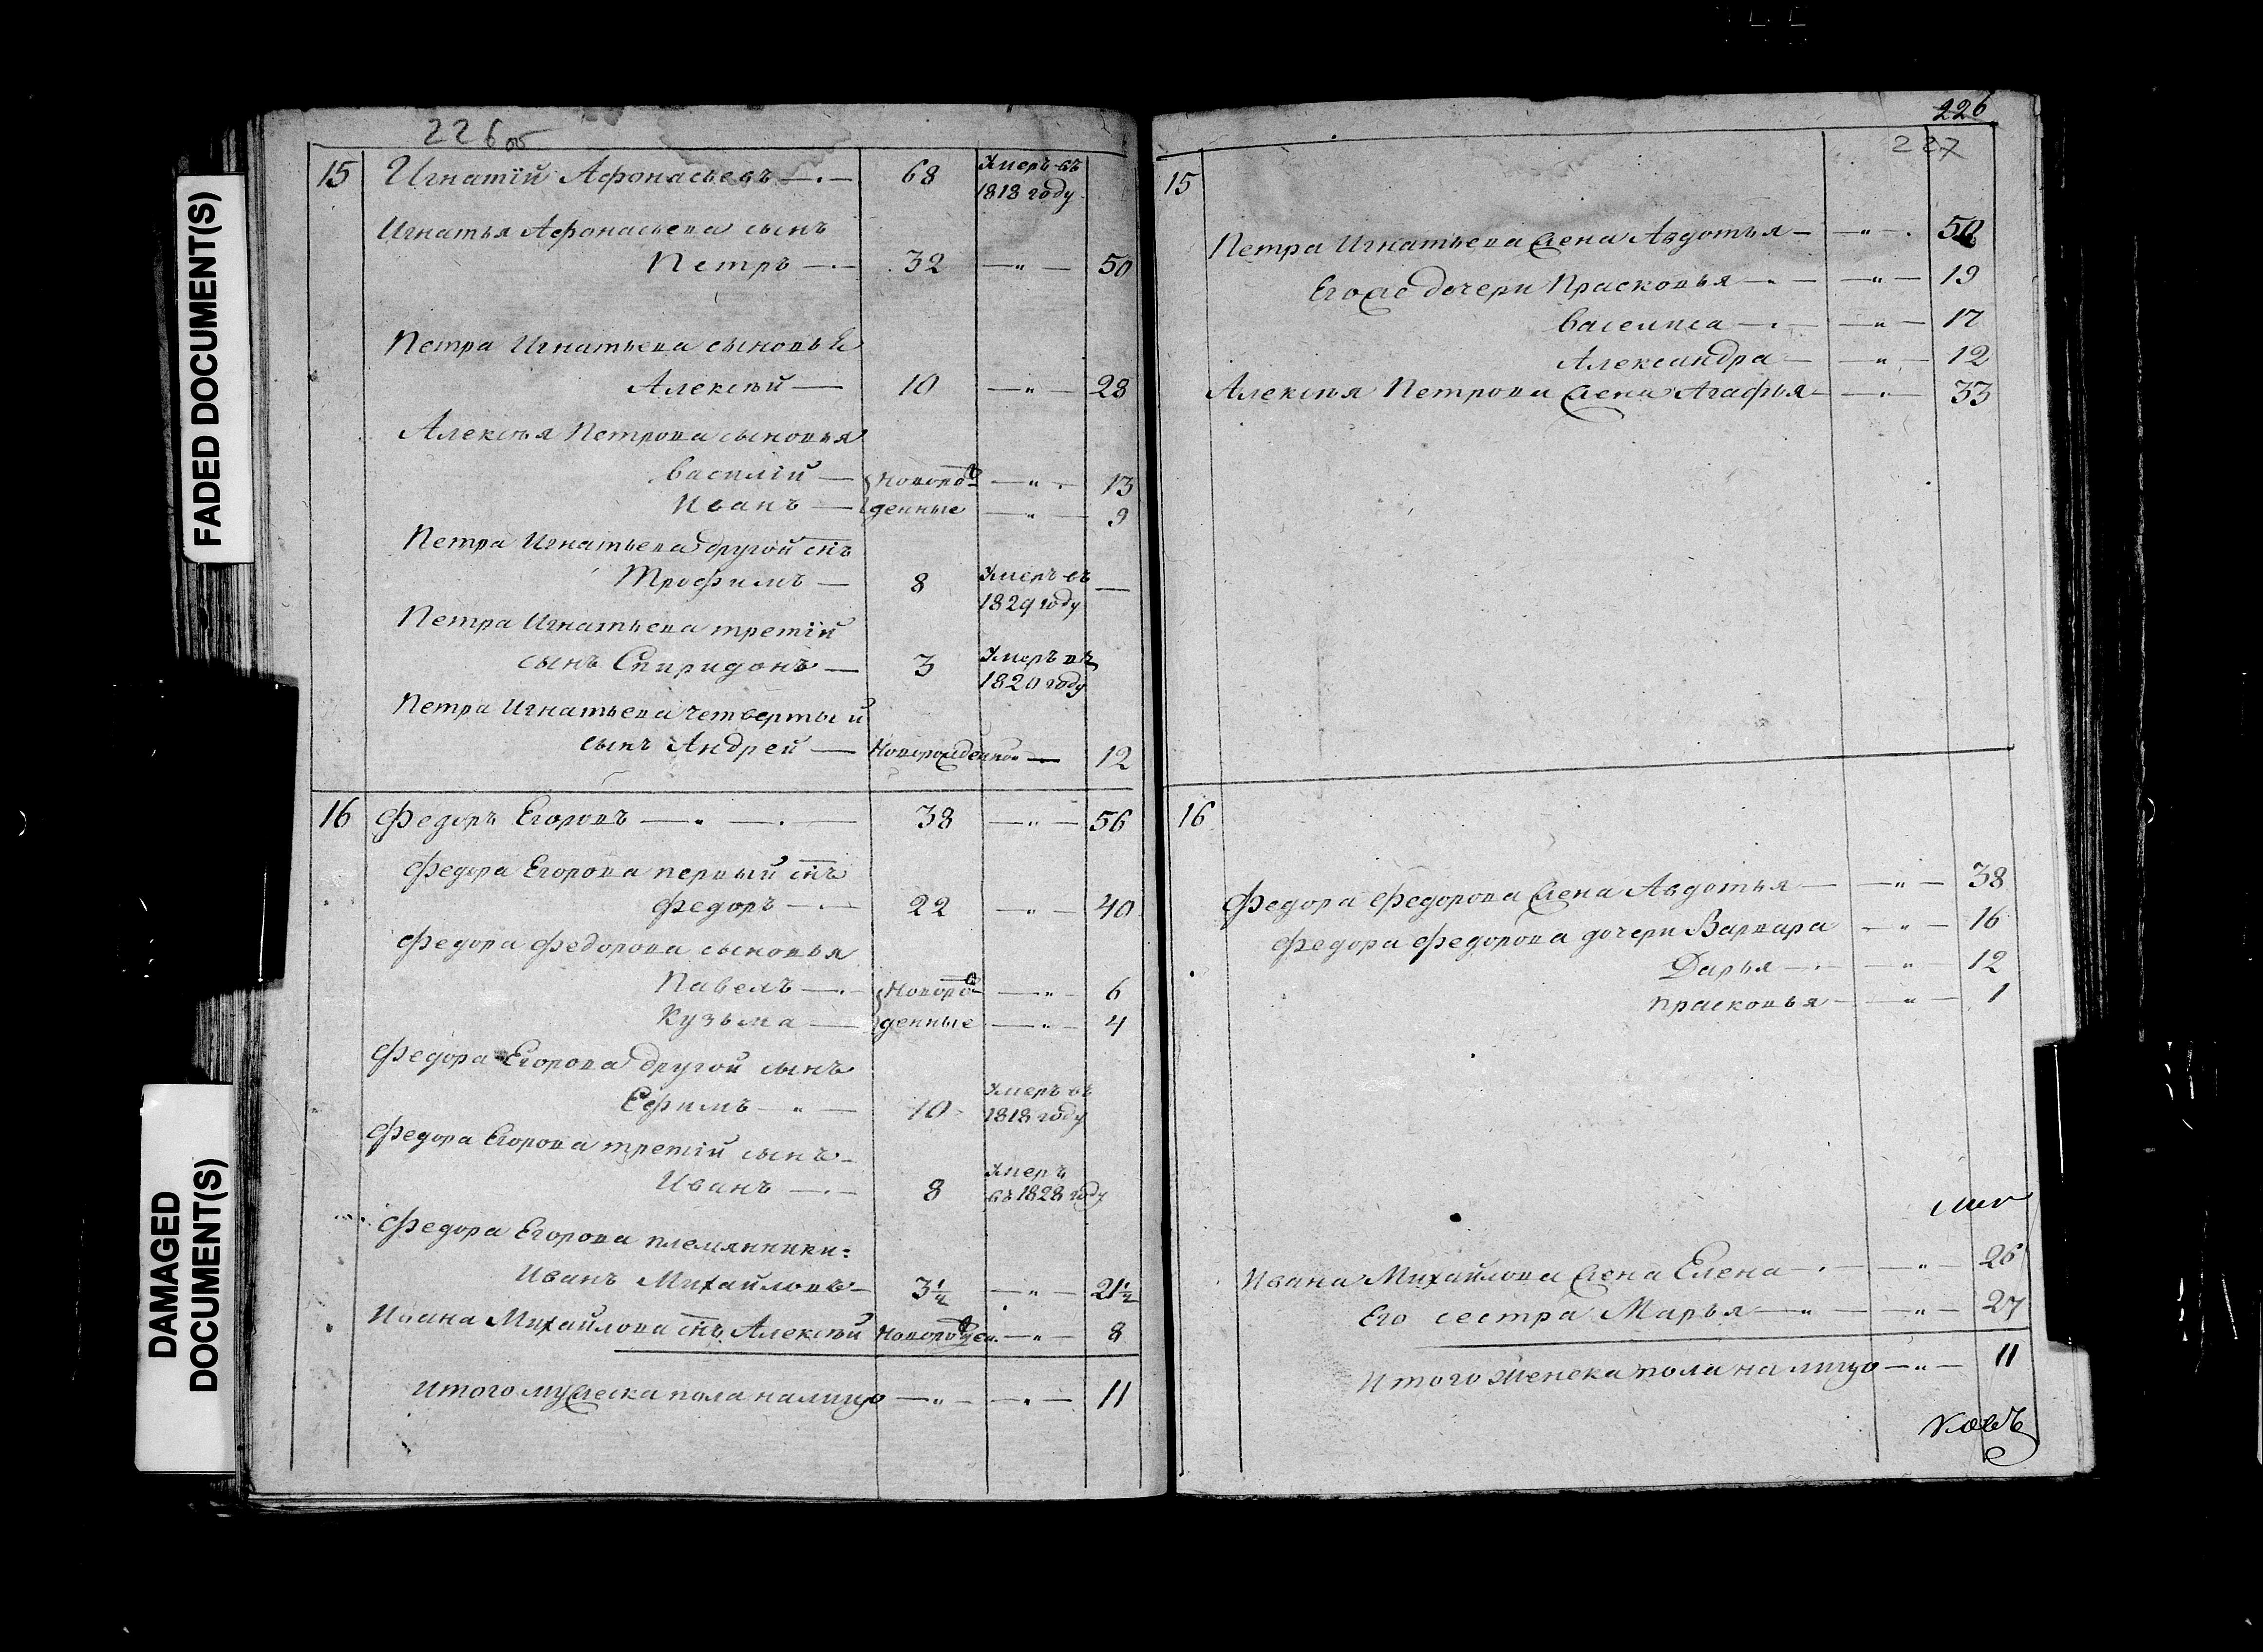 FADED DOCUMENT(S)
DAMAGED DOCUMENT(S)
226 об
15 Игнатій Афонасьевъ 68 Умеръ въ
1818 году
Игнатья Афонасьева сынъ
Петръ 32 — " — 50
Петра Игнатьева сыновья
Алексѣй 10 — " — 28
Алексѣя Петрова сыновья
Василій — новорож — " — 13
Иванъ — денные — " — 9
Петра Игнатьева другой снъ
Трофимъ — 8 Умеръ въ —
1829 году
Петра Игнатьева третій
сынъ Спиридонъ — 3 Умеръ въ
1820 году
Петра Игнатьева четвертый
сынъ Андрей — Новорожденной — 12
16 Федоръ Егоровъ 38 — " — 56
Федора Егорова первый снъ
Федоръ 22 — " — 40
Федора Федорова сыновья
Павелъ — Новорож — " — 6
Кузьма — денные — " — 4
Федора Егорова другой сынъ
Ефимъ — " — 10 Умеръ въ
1818 году
Федора Егорова третій сынъ
Иванъ 8 Умеръ
въ 1828 году
Федора Егорова племянники:
Иванъ Михайловъ 3½ — " — 21½
Ивана Михайлова снъ Алексѣй Новорожден. — " — 8
Итого мужеска пола налицо — " — 11
226
227
15
Петра Игнатьева жена Авдотья — " — 50
Его же дочери Прасковья — " — 19
Василиса — " — 17
Александра — " — 12
Алексѣя Петрова жена Агафья — " — 33
16
Федора Федорова жена Авдотья — " — 38
Федора Федорова дочери Варвара — " — 16
Дарья — " — 12
Прасковья — " — 1
Ивана Михайлова жена Елена — " — 26
Его сестра Марья — " — 27
Итого женска пола налицо — " — 11
ковъ